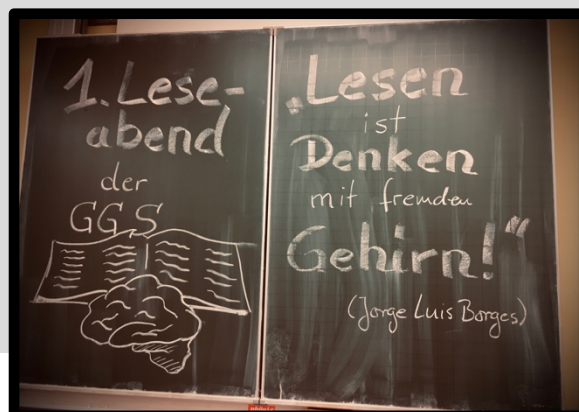 1. Lese-
abend
der
GGS
„Lesen
ist
Denken
mit fremden
Gehirn!“
(Jorge Luis Borges)